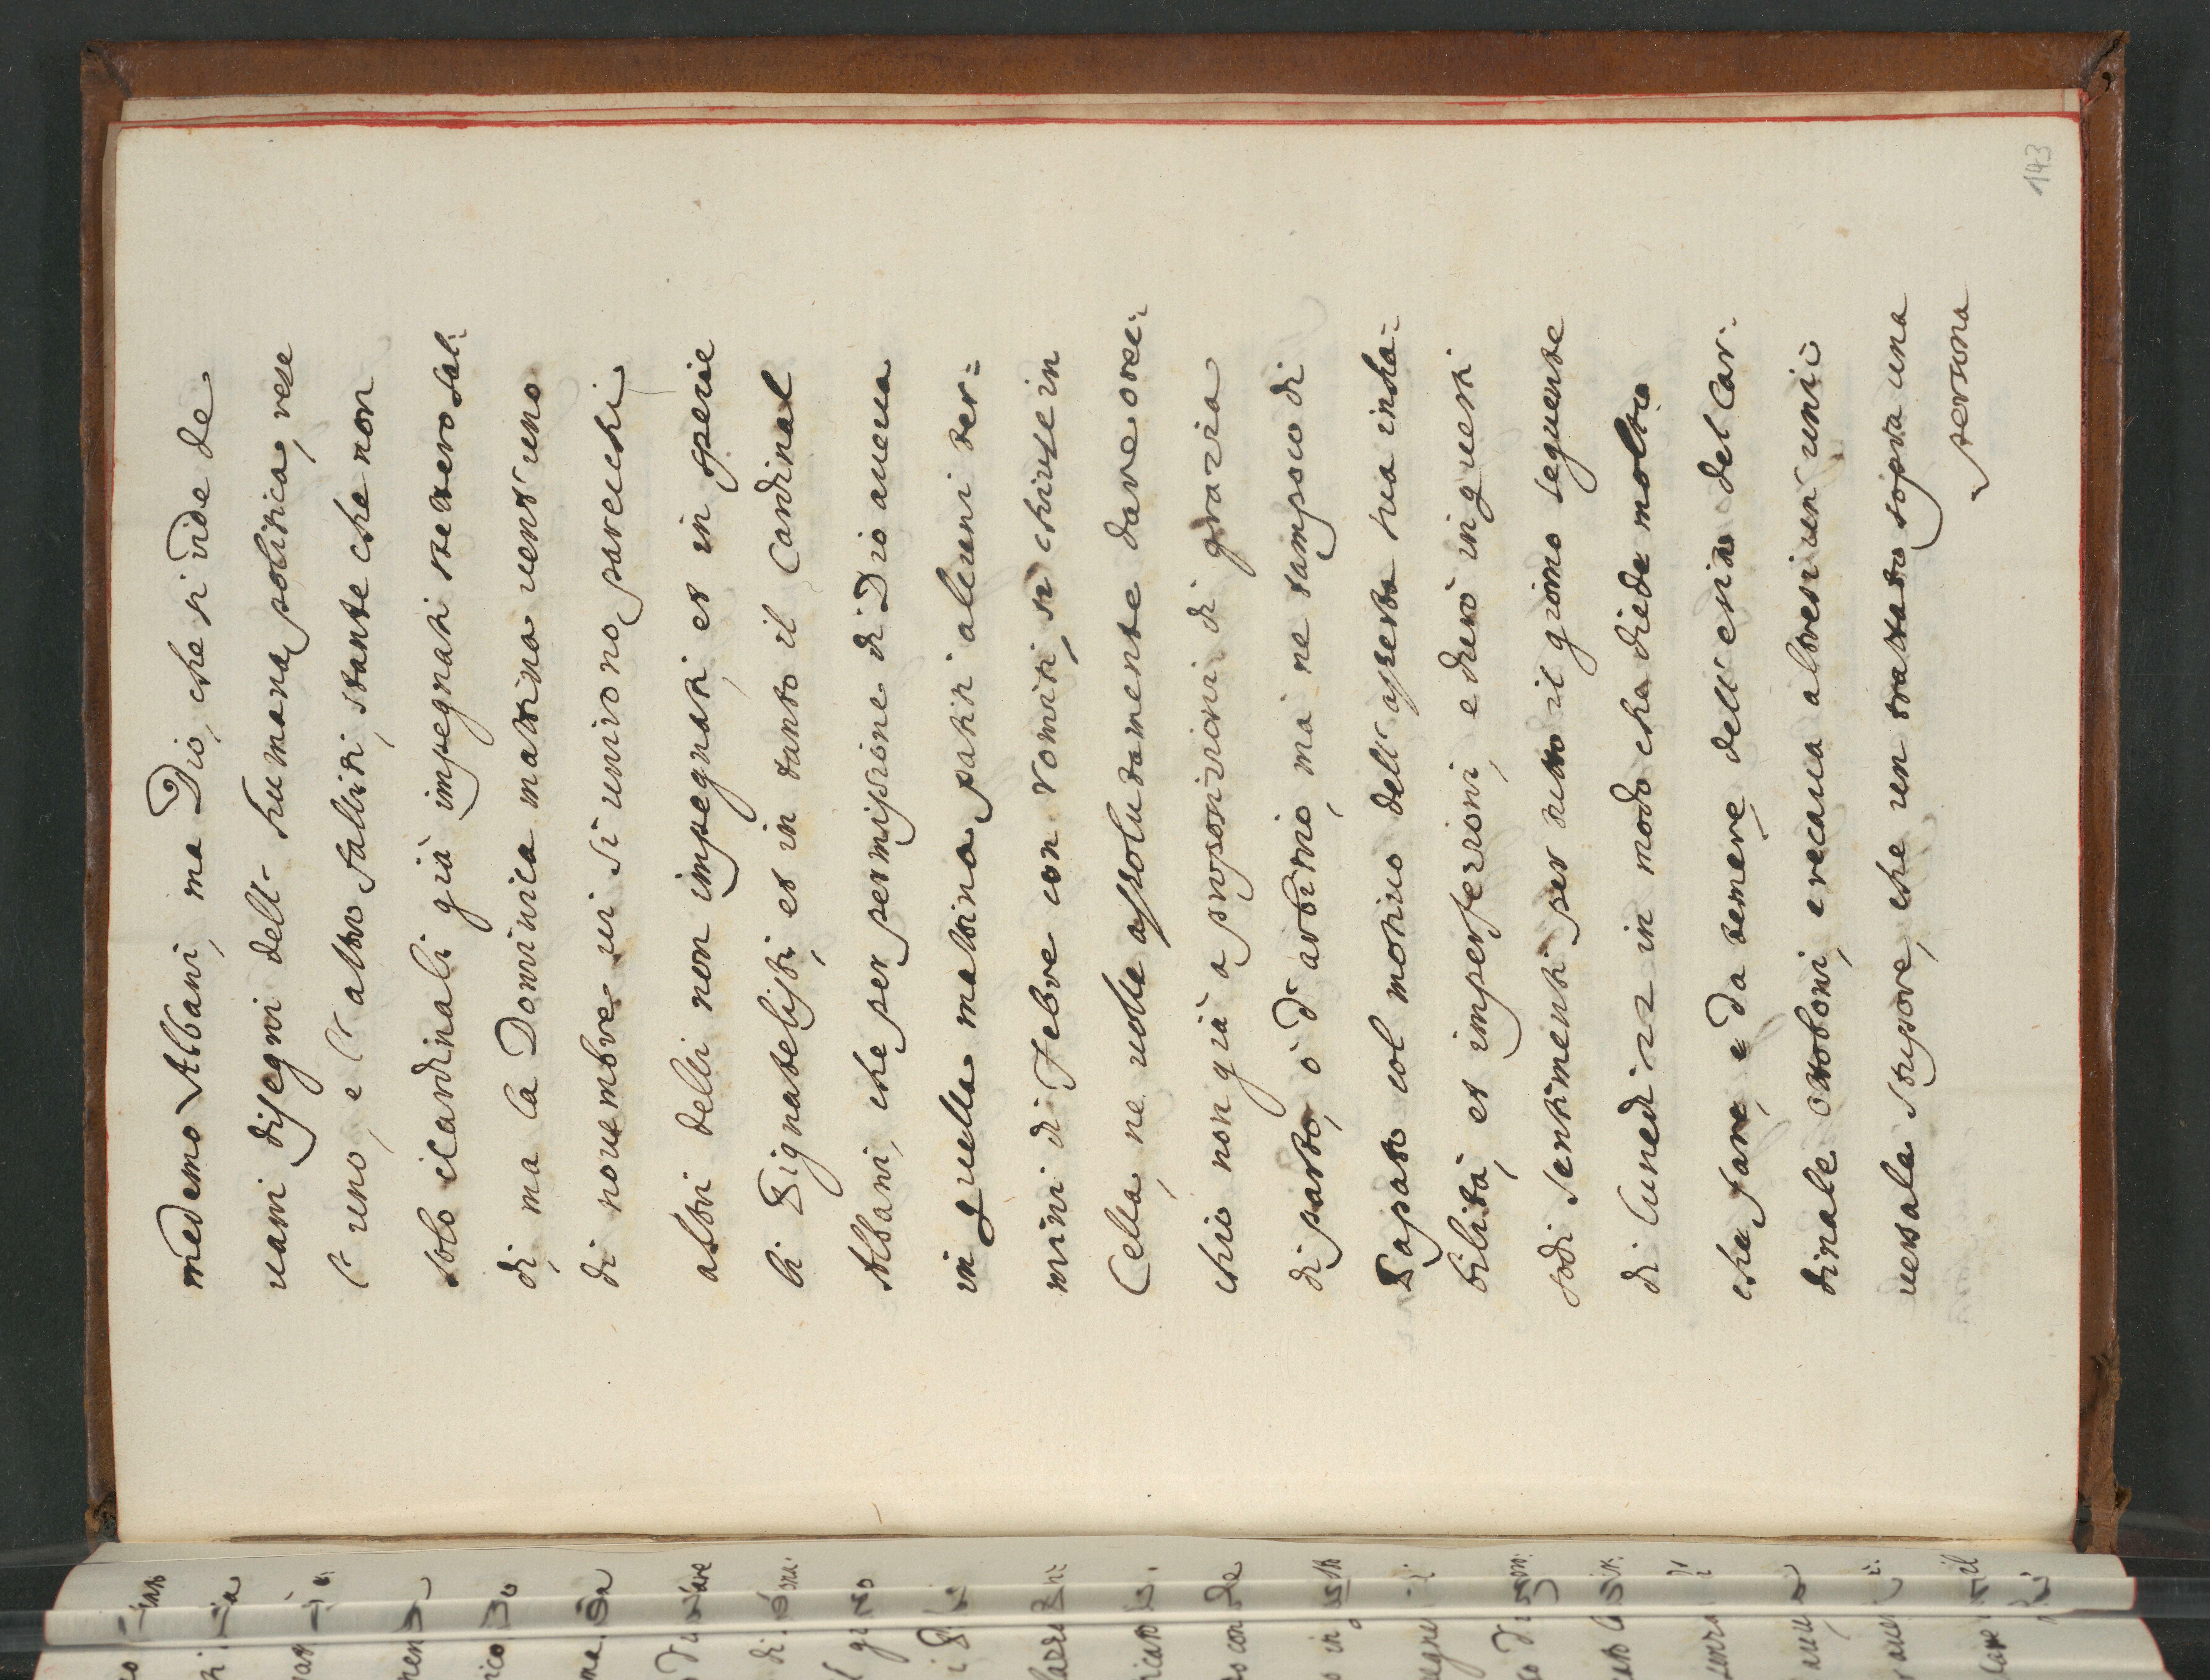 143
medemo Albani, ma Dio, che si ride de
uani disegni dell' humana politica, rese
l' uno, e l' altro falliti, stante che non
solo i Cardinali già impegnati stettero sal:
di, ma la Dominica mattina uent' uno
di nouembre ui si unirono parecchi
altri delli non impegnati, et in specie
li Pignatelisti, et in tanto il Cardinal
Albani, che per permissione di Dio aueua
in quella mattina patiti alcuni ter:
mini di Febre con vomiti, si chiuse in
Cella, ne uolse assolutamente dare orec:
chio non già a proposizioni di grazia
di parto, ò d' arbitrio, mà ne tampoco di
Papato col motiuo dell' asserta sua inha:
bilità, et imperfezzioni, e durò in questi
sodi sentimenti per tutto il giorno seguente
di lunedi 22 in modo che diede molto
che fare, e da temere dell' esito del Car:
dinale Ottoboni, e recaua altresi un' uni:
uersale stupore, che un trattato sopra una
persona